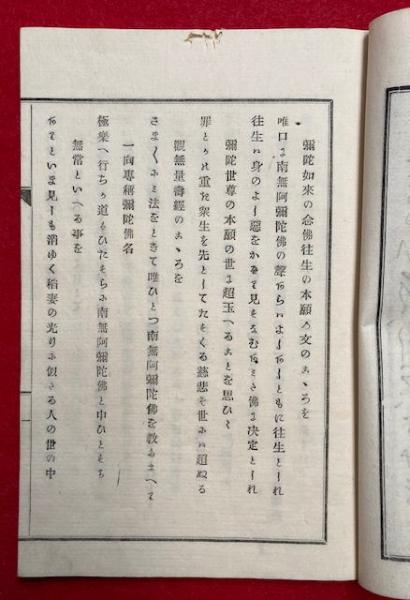 彌陀如來の念佛往生の本願の文のこゝろを
唯口に南無阿彌陀佛の聲
ともに往生としれ
往生は身のよし惡を
佛に決定としれ
彌陀世尊の本願の世に超玉へることを思ひて
罪とかの重た衆生を先としてたすくる慈悲そ世に超ぬる
觀無量壽經のこゝろを
さま〲に法をときて唯ひとつ南無阿彌陀佛を教
一向專稱彌陀佛名
極樂へ行ちか道もひたすらに南無阿彌陀佛と申ひとすち
無常といへる事を
いま見しも消ゆく稻妻の光りに似たる人の世の中